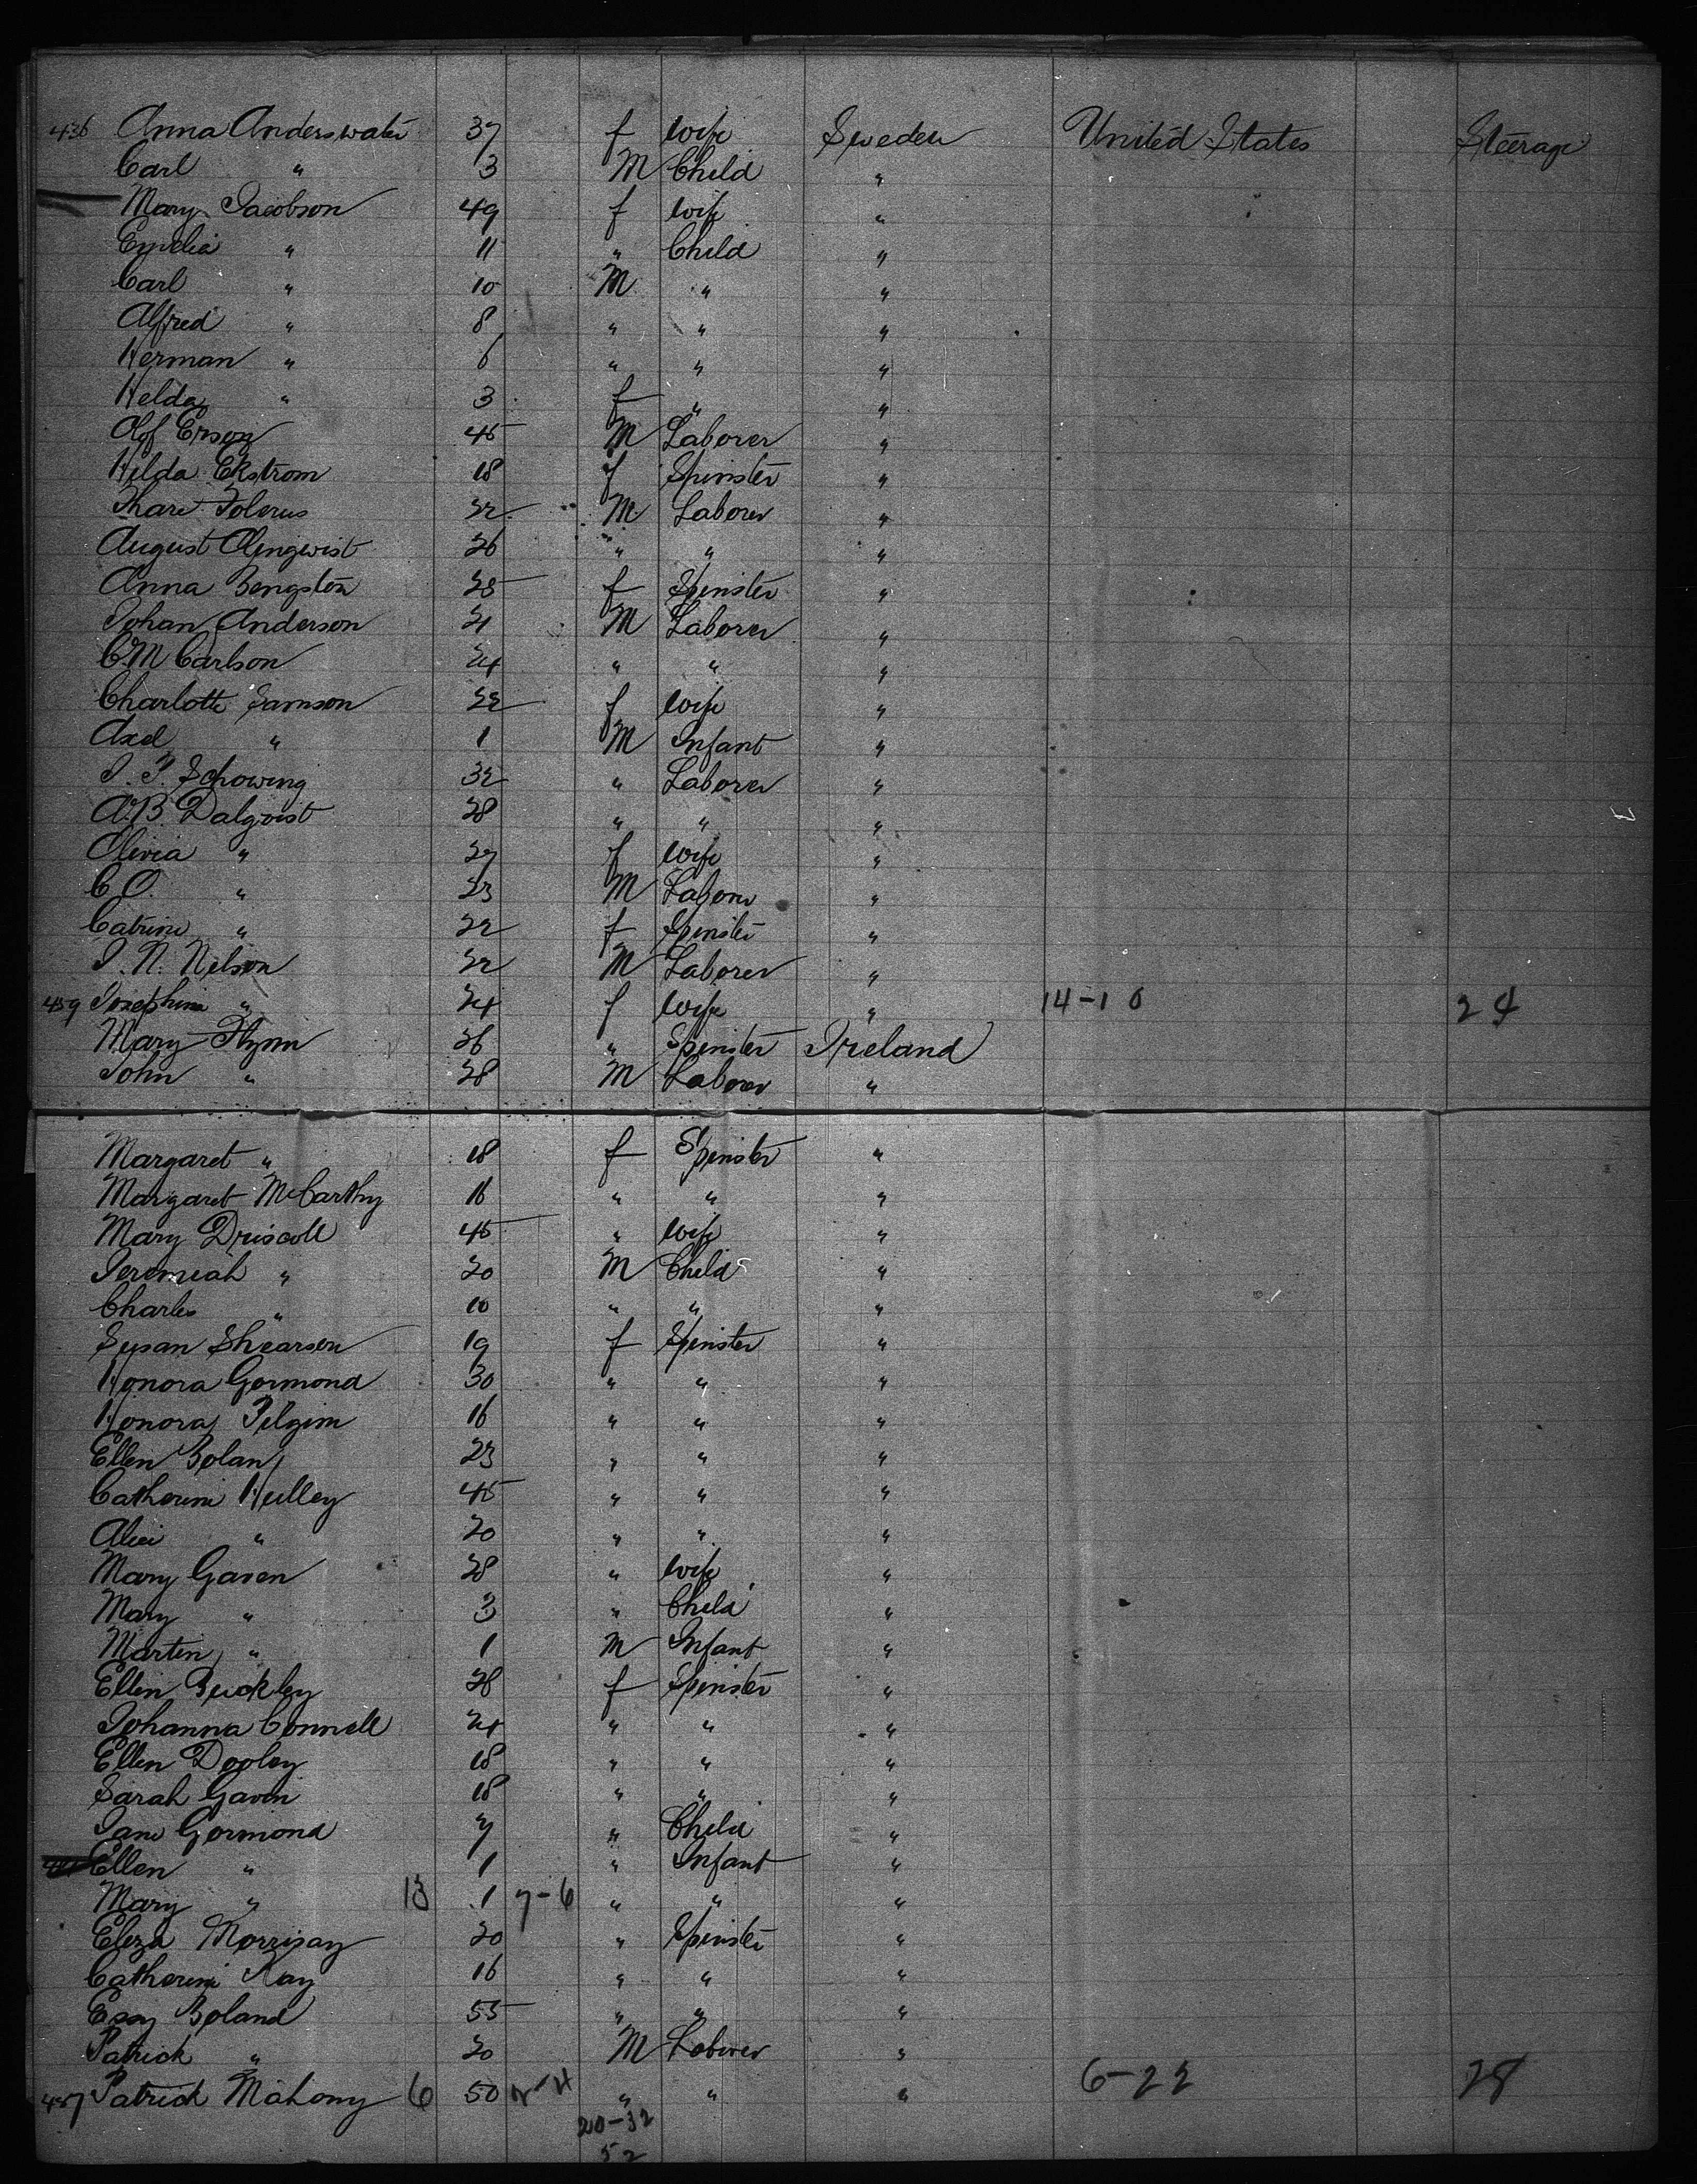 436 Anna Anderswater 37 f wife Sweden United States Steerage
Carl " 3 M Child "
Mary Jacobson 49 f wife "
Emelia " 11 " Child "
Carl " 10 M " "
Alfred " 8 " " "
Herman " 6 " " "
Helda " 3 f " "
Olof Erson 45 M Laborer "
Hilda Ekstrom 18 f Spinster "
Tolerus 22 M Laborer "
August 26 " " "
Anna Bengston 25 f Spinster "
Johan Anderson 21 M Laborer "
C.M Carlson 24 " " "
Charlotte Samson 22 f wife "
Axel " 1 M Infant "
Schowing 32 " Laborer "
A.B. Dalqvist 28 " " "
Olivia " 27 f wife "
C O. " 23 M Laborer "
Catrine " 22 f Spinster "
J. N. Nelson 22 M Laborer "
459 Josephine " 24 f wife " 14-10 24
Mary Flynn 26 " Spinster Ireland
John " 28 M Laborer "
Margaret " 18 f Spinster "
Margaret McCarthy 16 " " "
Mary Driscoll 45 " wife "
Jeremiah " 20 M Child "
Charles " 10 " " "
Susan Shearson 19 f Spinster "
Honora Gormond 30 " " "
Honora Pilgim 16 " " "
Ellen Bolan 23 " " "
Catherine Hulley 45 " " "
Alice " 20 " " "
Mary Gaven 28 " wife "
Mary " 3 " Child "
Martin " 1 M Infant "
Ellen Buckley 28 f Spinster "
Johanna Connell 24 " " "
Ellen Dooley 18 " " "
Sarah Gavin 18 " " "
Jane Gormond 7 " Child "
Ellen " 1 " Infant "
Mary " 13 1 7-6 " " "
Eliza Morrisay 20 " Spinster "
Catherine Kay 16 " " "
Essy Boland 55 " " "
Patrick " 20 M Laborer "
487 Patrick Mahony 6 50 " " " 6-22 28
20-32
52